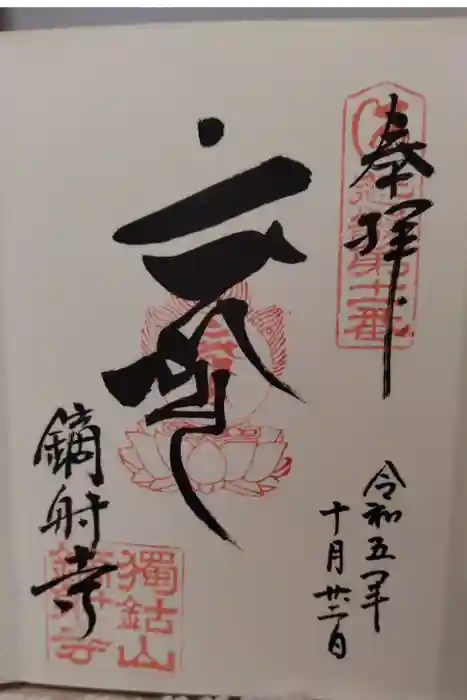 奉拝
第十二番
令和五年
十月廿二日
鏑射寺
獨鈷山
鏑射寺